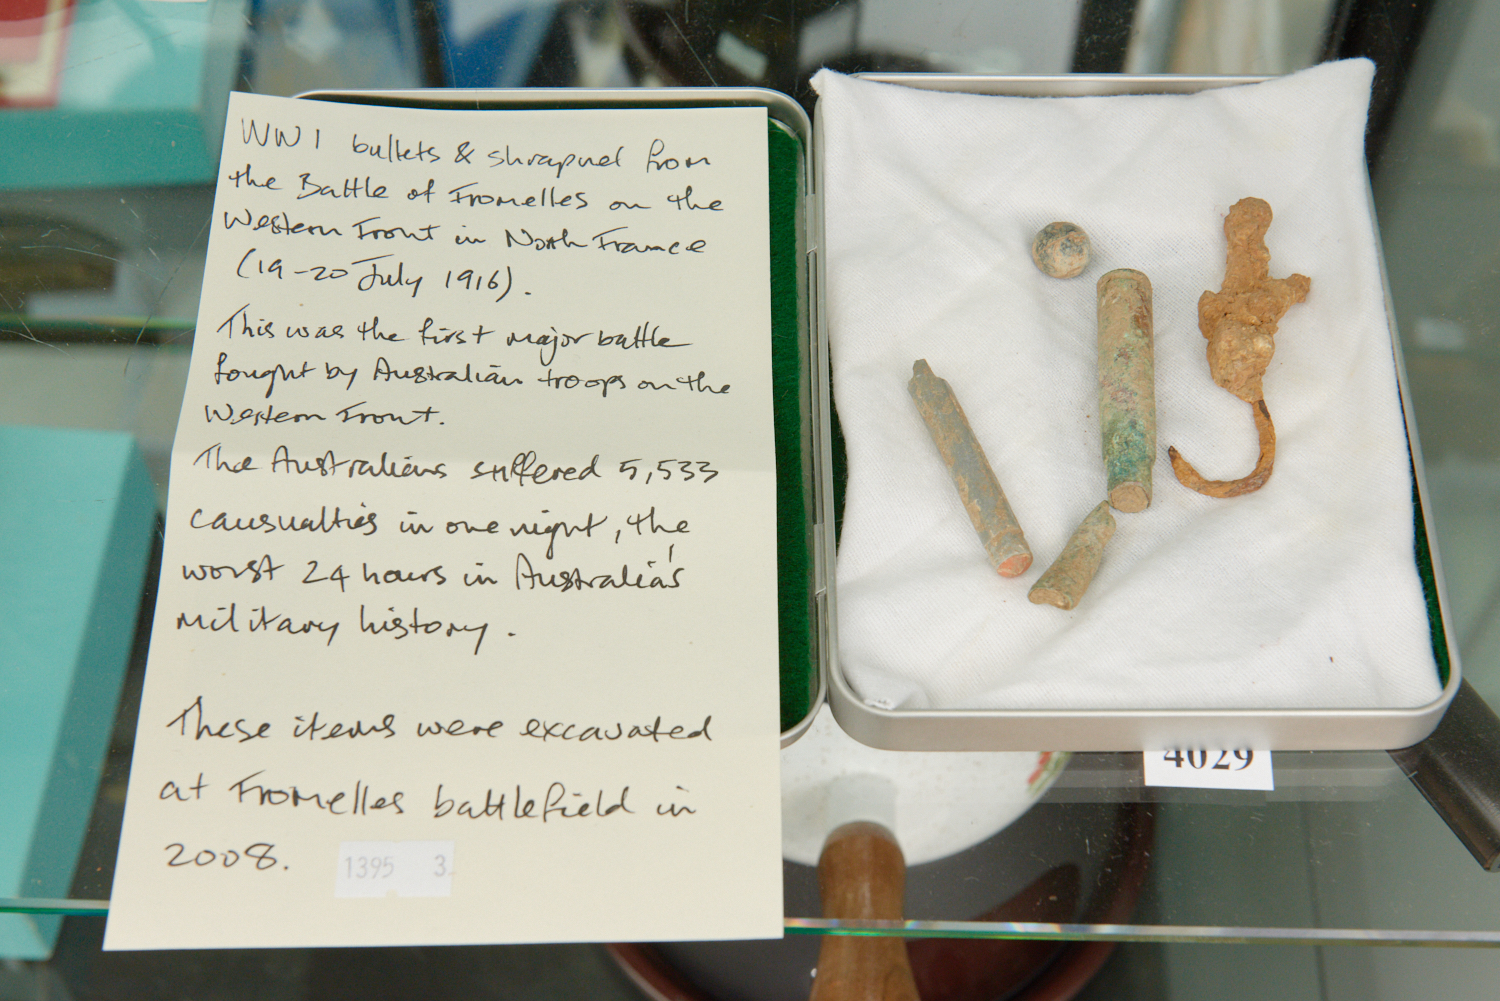 WW1 bullets & shrapnel from
the Battle of Fromelles on the
Western Front in North France
(19-20 July 1916).
This was the first major battle
fought by Australian troops on the
Western Front.
The Australians suffered 5,533
causualties in one night, the
worst 24 hours in Australia's
military history.
These items were excavated
at Fromelles battlefield in
2008.
1395 3
4029